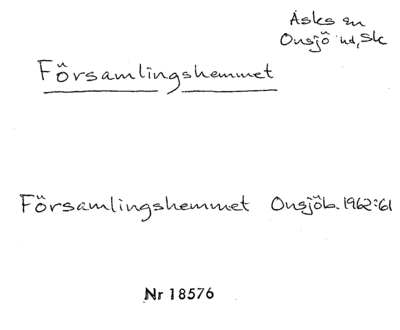 Asks sn
Onsjö hd, Sk
Församlingshemmet
Församlingshemmet Onsjöb. 1962:61
Nr 18576